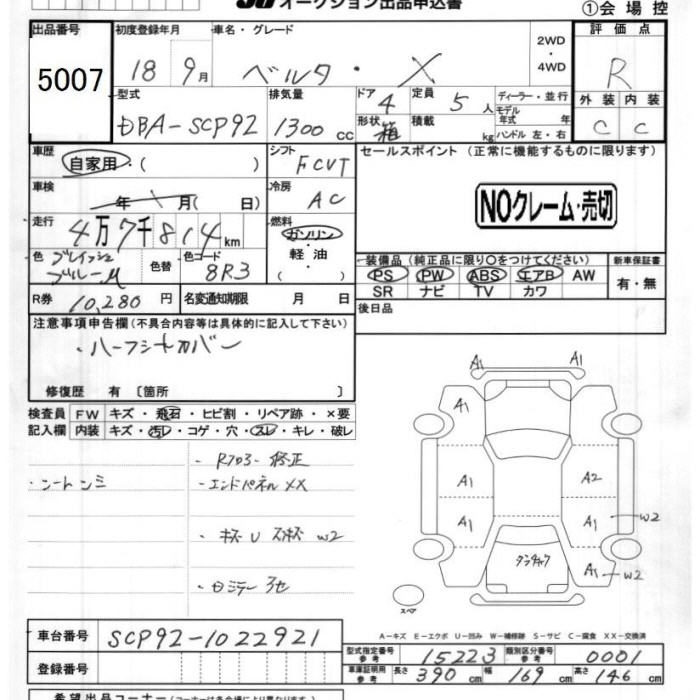 オークション出品申込書
①会場控
出品番号 初度登録年月 車名・グレード 2WD・4WD 評価点
5007 18年 9月 ベルタ・X R
型式 排気量 ドア 4 定員 5人 ディーラー・並行
DBA-SCP92 1300cc 形状 箱 積載 kg モデル 年式 年 ハンドル 左・右
外装 内装
C C
車歴 自家用・( ) シフト FCVT セールスポイント (正常に機能するものに限ります)
車検 年 月( 日) 冷房 AC
NOクレーム・売切
走行 4万7千814km 燃料 ガソリン・軽油 ( )
色 ブレイッシュブルーM 色替 色コード 8R3
装備品 (純正品に限り○をつけてください) 新車保証書
PS PW ABS エアB AW 有・無
SR ナビ TV カワ
R券 10,280円 名変通知期限 月 日
後日品
注意事項申告欄(不具合内容等は具体的に記入して下さい)
・ハーフシートカバー
修復歴 有 〔箇所 〕
検査員記入欄 FW キズ・飛石・ヒビ割・リペア跡・×要
内装 キズ・汚レ・コゲ・穴・スレ・キレ・破レ
・Rフロアー修正
・シートシミ ・エンドパネルXX
・キズU スキズ W2
A1 A1
A1
A1 A2
A1 A1 W2
A1 W2
スペア
A-キズ E-エクボ U-凹み W-補修跡 S-サビ C-腐食 XX-交換済
車台番号 SCP92-1022921
型式指定番号 参考 15223 類別区分番号 参考 0001
登録番号
車庫証明用 参考 長さ 390cm 幅 169cm 高さ 146cm
希望出品コーナー(コーナーは各会場により異なります)